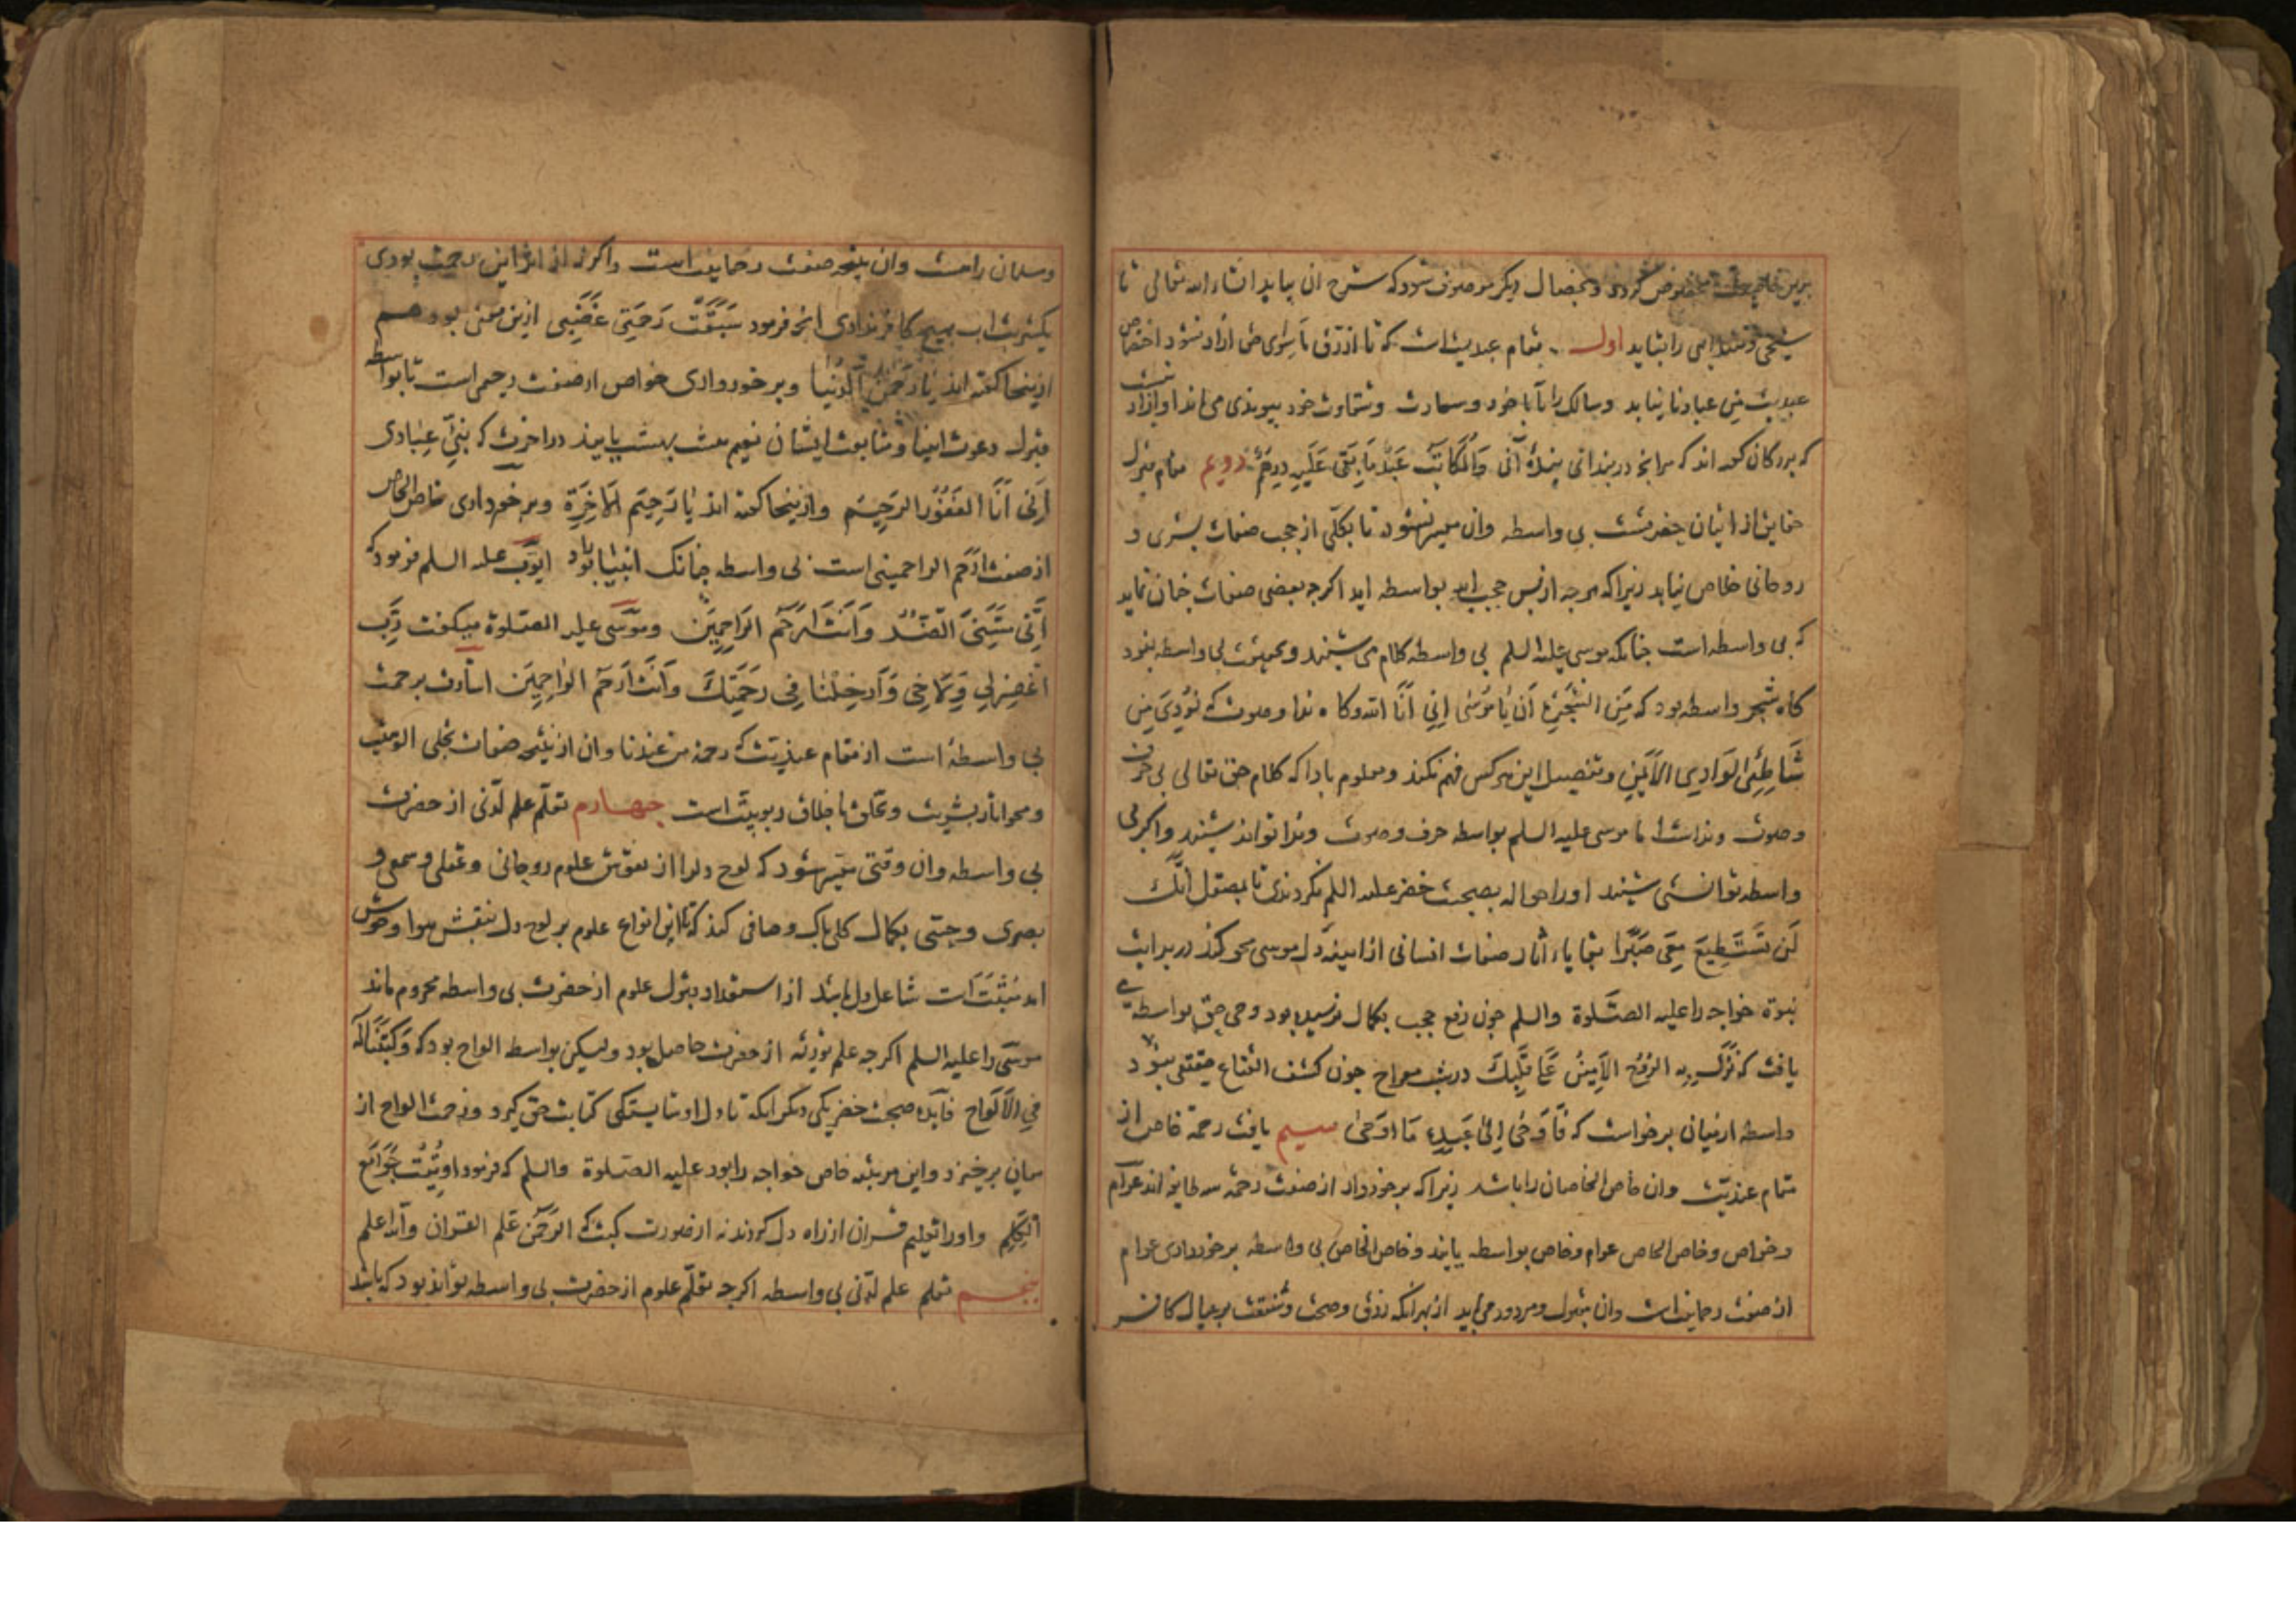 برین خاصیت مخصوص کردد و بخصال دیکر موصوف شود که شرح ان بیاید انشاء الله تعالی تا
شیخی و مقتدایی را بشاید اول مقام عبدیت است که تا از رق ماسوای حق ازاد نشود اختصاص
عبدیت من عبادنا نیابد و سالک را تا با خود و سعادت و شقاوت خود پیوندی می ماند او ازاد نیست
که بزرکان کفته اند که هر انچه در بند انی بندهٔ آنی وَالْمُکَاتَبُ عَبْدٌ مَا بَقِیَ عَلَیْهِ دِرْهَمٌ دویم مقام قبول
حقایق از اتیان حضرتست بی واسطه وان میسر نشود تا بکلّی از حجب صفات بشری و
روحانی خلاص نیابد زیرا که هرجه از پس حجب اید بواسطه اید اکرجه بعضی صفات جنان نماید
که بی واسطه است جنانکه موسی علیه السلم بی واسطه کلام می شنید و بحقیقت بی واسطه نبود
کاه شجر واسطه بود که مِنَ الشَّجَرَةِ اَن یَا مُوْسٰی اِنِّی اَنَا الله و کاه ندا و صوت که نُوْدِیَ مِن
شَاطِئِ الْوَادِی الاَیْمَنِ و تفصیل این هرکس فهم نکند و معلوم بادا که کلام حق تعالی بی حرف
وصوت و نداست اما موسی علیه السلم بواسطه حرف و صوت و ندا تواند شنید و اکر بی
واسطه توانستی شنید او را حواله بصحبت خضر علیه السلم نکردندی تا بصقل اِنَّکَ
لَن تَسْتَطِیعَ مَعِیَ صَبْرًا بقایاء اثار صفات انسانی از اینهٔ دل موسی محو کند در بدایت
نبوة خواجه را علیه الصَّلوة والسلم چون رفع حجب بکمال نرسیده بود وحی حق بواسطه می
یافت که نَزَلَ بِهِ الرُّوْحُ الاَمِینُ عَلَی قَلْبِکَ در شب معراج جون کشف القناع حقیقی ببود
واسطه از میان برخواست که فَاَوْحٰی اِلیٰ عَبْدِهِ مَا اَوْحٰی سیم یافت رحمة خاص از
مقام عندیّت وان خاص الخاصان را باشد زیرا که برخوردار از صفت رحمة سه طایفه اند عوام
و خواص و خاص الخاص عوام و خاص بواسطه یابند و خاص الخاص بی واسطه برخورداری عوام
از صفت رحمانیت است وان مقبول و مردود می یابد از بهر انکه رزق و صحت و شفقت بر عیال کافر
و مسلمان راهست وان نتیجه صفت رحمانیت است واکر نه از اثر این رحمت بودی
یکشربت اب بهیچ کافر ندادی انچه فرمود سَبَقَتْ رَحْمَتِی غَضَبِی ازین معنی بود هم
ازینجا کفته اند یَا رَحْمٰنَ الدُّنْیَا و برخورداری خواص از صفت رحیمی است تا بواسطه
قبول دعوت انبیا و متابعت ایشان نعیم هشت بهشت یابند در اخرت که نَبِّئْ عِبَادِی
اَنِّی اَنَا الغَفُوْرُ الرَّحِیْم وازینجا کفته اند یَا رَحِیْمَ الاَخِرَة و برخورداری خاص الخاص
از صفت ارحم الراحمینی است بی واسطه جنانک انبیا بود ایوّب علیه السلم فرمود که
اِنِّی مَسَّنِیَ الضُّرُّ وَ اَنْتَ اَرْحَمُ الرَّاحِمِیْنَ و موسَی علیه الصّلوة میکفت رَبِّ
اغْفِرْلِی وَلِاَخِی وَ اَدْخِلْنَا فِی رَحْمَتِکَ وَ اَنْتَ اَرْحَمُ الرَّاحِمِیَن اشارت برحمت
بی واسطهٔ است از مقام عندیّت که رحمة من عندنا وان از نتیجه صفات تجلی الوهیت
ومحو اثار بشریت و تخلق باخلاق ربوبیت است جهارم تعلّم علم لدنی از حضرت
بی واسطه وان وقتی میّسر شود که لوح دلرا از نقوش علوم روحانی و عقلی و سمعی و
بصری و حِسّی بکمال کلی پاک و صافی کند که تا این انواع علوم بر لوح دل منقش هوا و حوش
اند مثبتست شاغل دل باشد از استعداد قبول علوم از حضرت بی واسطه محروم ماند
موسَی را علیه السلم اکرجه علم توریٰة از حضرت حاصل بود ولیکن بواسطه الواح بود که وَکَتَبْنَا لَهُ
فِی الاَلْوَاحِ فایده صحبت خضر یکی دیکر انکه تا دل او شایستکی کتابت حق کیرد و زحمت الواح از
میان برخیزد و این مرتبٔه خاص خواجه را بود علیه الصّلوة والسلم که فرمود اُوتِیْتُ جَوَامِعَ
الکَلِم و او را تعلیم قران از راه دل کردند نه از صورت کبت که الرَّحْمٰن عَلَّمَ القرٰان و اما علم
پنجم تعلم علم لدّنی بی واسطه اکرجه تعلّم علوم از حضرت بی واسطه تواند بود که باشد